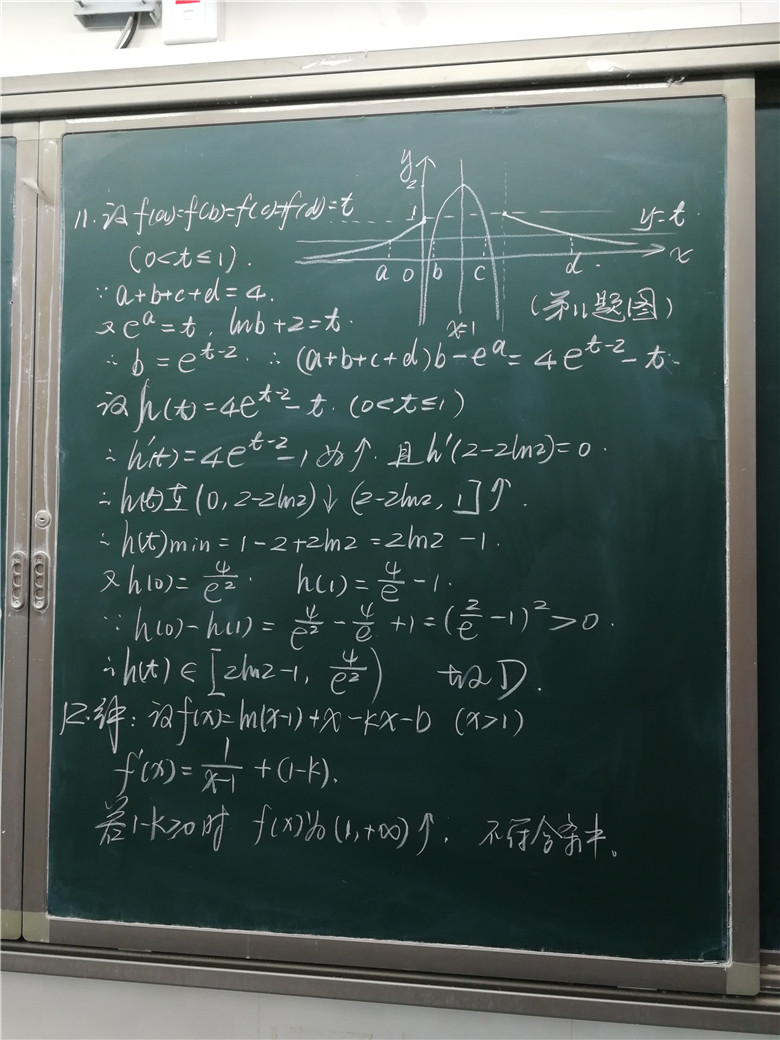 11. 设f(a)=f(b)=f(c)=f(d)=t
(0<t≤1).
∵a+b+c+d=4.
又e^a=t, lnb+2=t.
∴b=e^{t-2}. ∴(a+b+c+d)b-e^a=4e^{t-2}-t.
y
2
1
y=t
x
a
0
b
c
d
x=1
(第11题图)
设h(t)=4e^{t-2}-t.(0<t≤1)
∴h'(t)=4e^{t-2}-1为↑.且h'(2-2ln2)=0.
∴h(t)在(0,2-2ln2)↓(2-2ln2,1]↑.
∴h(t)min=1-2+2ln2=2ln2-1.
又h(0)=4/e². h(1)=4/e-1.
∵h(0)-h(1)=4/e²-4/e+1=(2/e-1)²>0.
∴h(t)∈[2ln2-1,4/e²) 故选D.
12.解:设f(x)=ln(x-1)+x-kx-b (x>1)
f'(x)=1/(x-1)+(1-k).
若1-k≥0时 f(x)为(1,+∞)↑. 不符合条件。